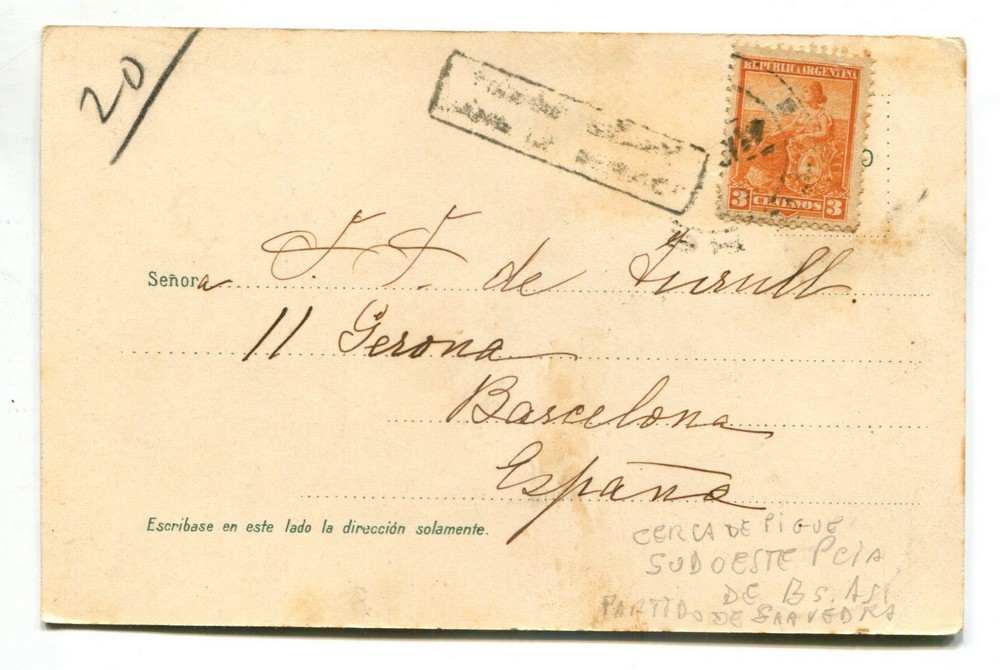 20
REPUBLICA ARGENTINA
3 CENTAVOS 3
Señora F. F. de Turull.
11 Gerona
Barcelona
España
Escríbase en este lado la dirección solamente.
CERCA DE PIGUE
SUDOESTE PCIA
DE BS. AS.
PARTIDO DE SAAVEDRA